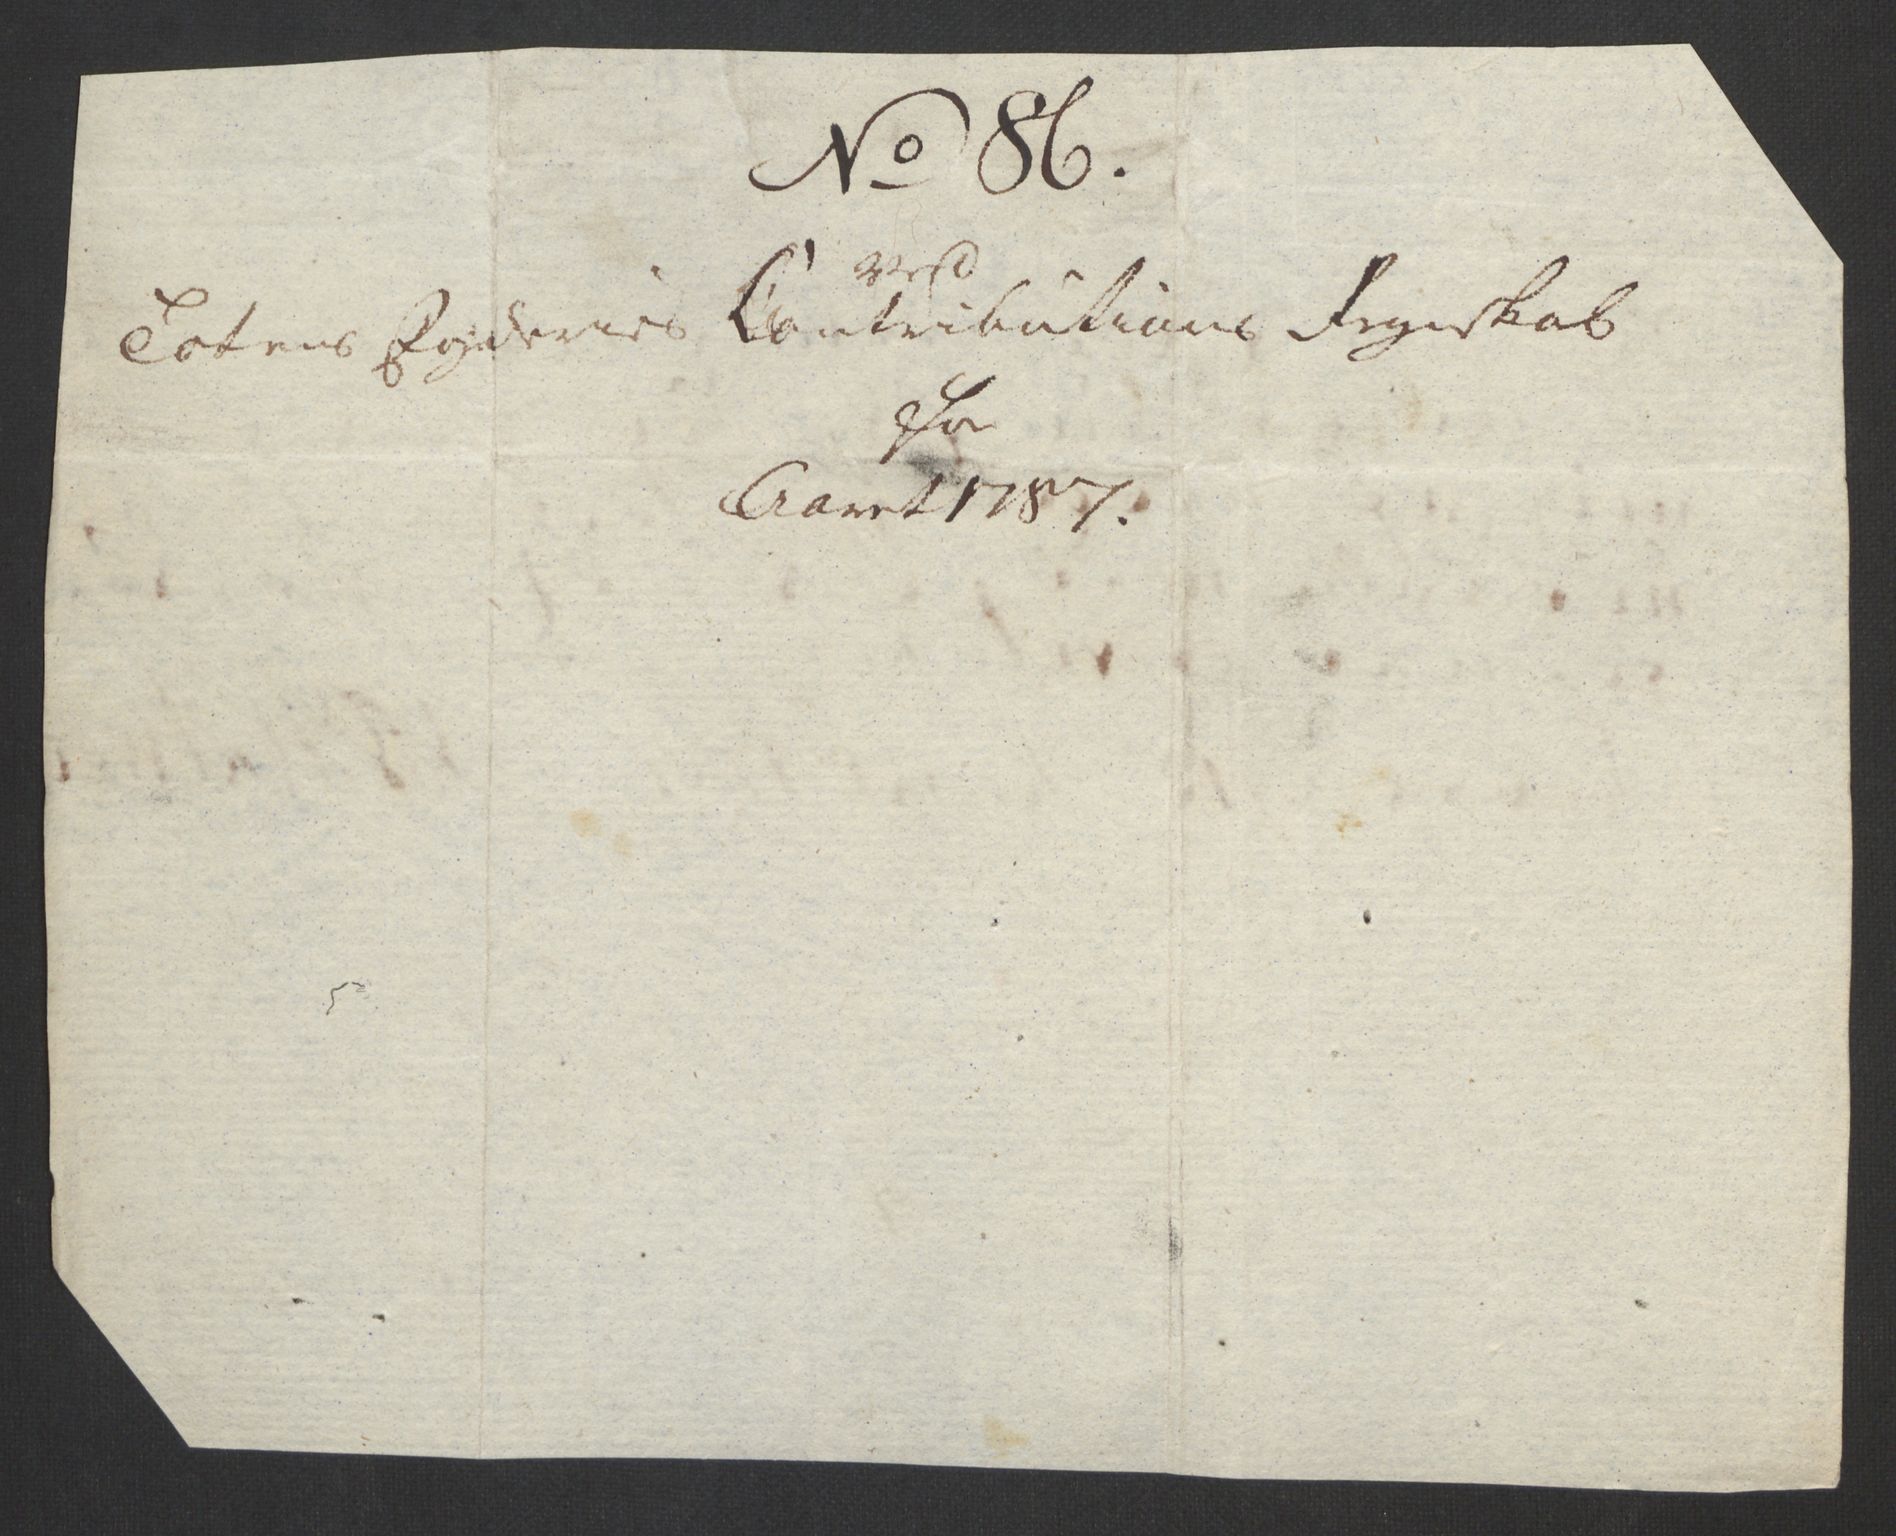 No 86.
ved
Totens Fogderies Contributions Regnskab
for
Aaret 1787.
5